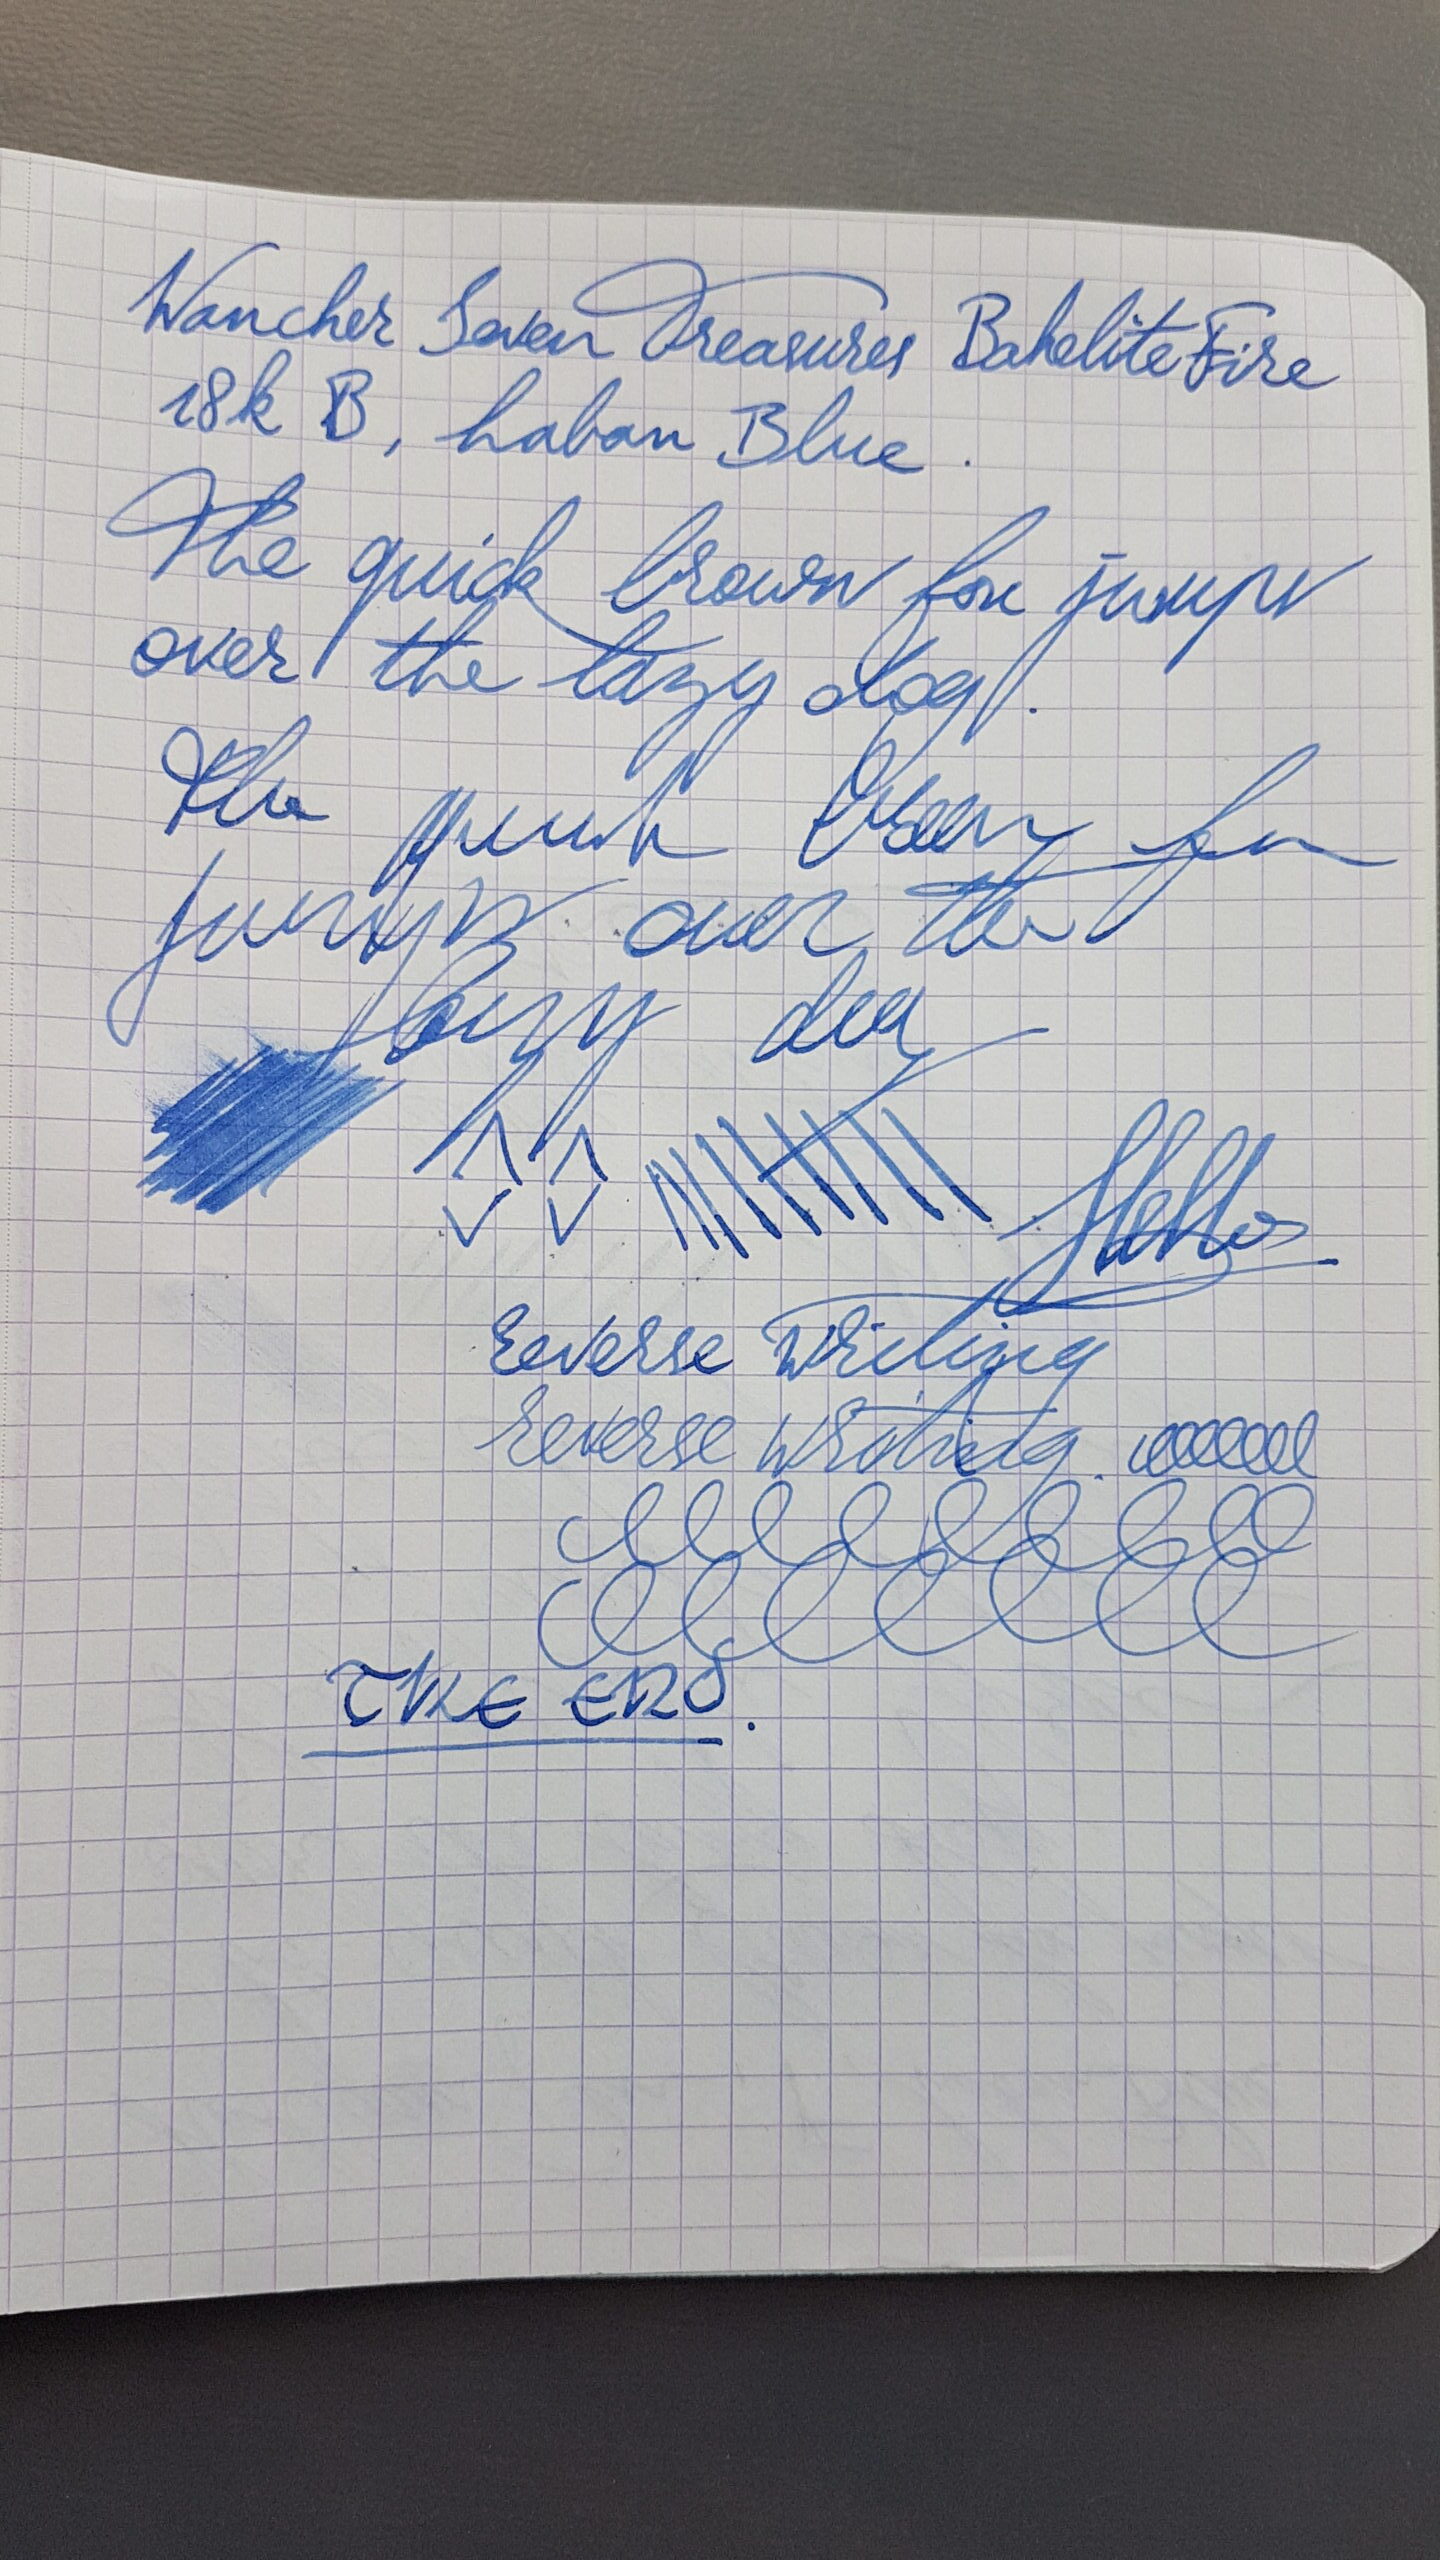 Wancher Seven Treasures Bakelite Fire
18k B, Laban Blue.
The quick brown fox jumps
over the lazy dog.
The quick brown fox
jumps over the
lazy dog
Hello
Reverse Writing
Reverse writing.
THE END.